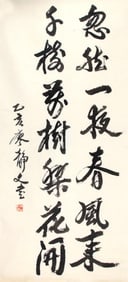 忽然一夜春風来
千樹万樹梨花開
乙亥康静文書